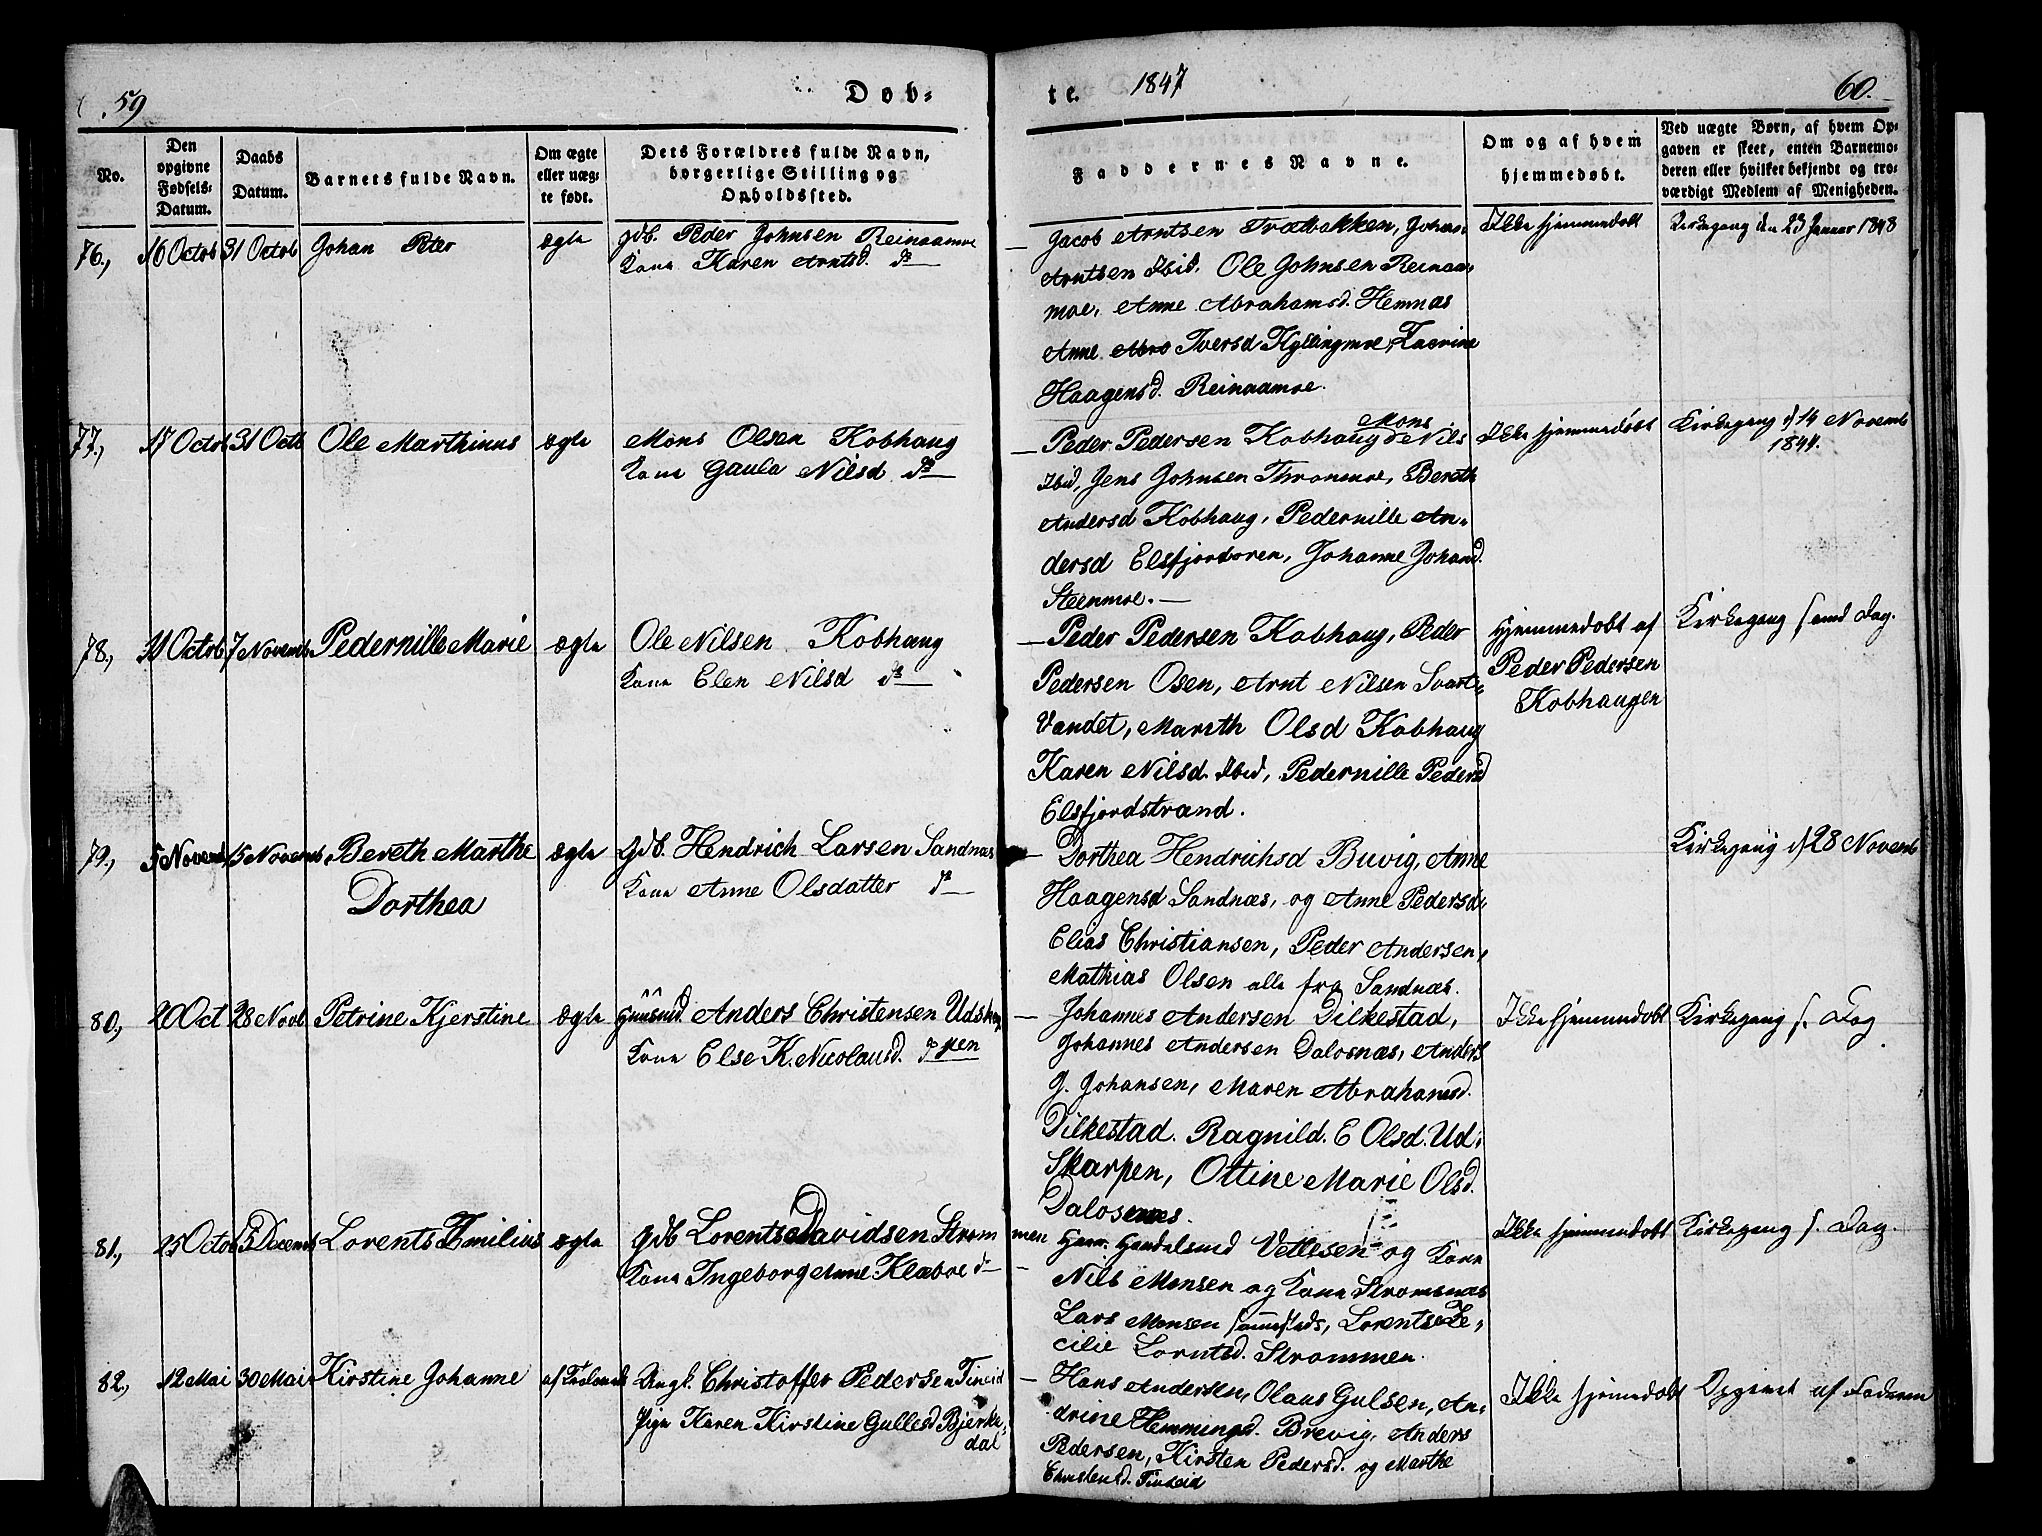 59
Døb-
te.
1847
60.
No.
Den
opgivne
Fødsels-
Datum.
Daabs
Datum.
Barnets fulde Navn.
Om ægte
eller uæg-
te født.
Dets Forældres fulde Navn,
borgerlige Stilling og
Opholdssted.
Faddernes Navne.
Om og af hvem
hjemmedøbt.
Ved uægte Børn, af hvem Op-
gaven er skeet, enten Barnemo-
deren eller hvilket bekjendt og tro-
værdigt Medlem af Menigheden.
76., 16 Octob 31 Octob Johan Peter ægte Gdb. Peder Johnsen Reinaamoe
Kone Karen Arntsd. ds
— Jacob Arntsen Trætbakken, Johan
Arntsen Ibid. Ole Johnsen Reinaa-
moe, Anne Abrahamsd. Hemnæs
Anne Abra Iversd Kyllingmoe,
Haagensd. Reinaamoe.
Ikke hjemmedøbt
Kirkegang den 23 Januar 1848
77., 17 Octob 31 Octb Ole Marthinus ægte Mons Olsen Kobhaug
Kone Gaula Nilsd ds
— Peder Pedersen Kobhaug Mons Nils
Ibid, Jens Johnsen Thronmoe, Bereth
Andersd Kobhaug, Pedernille An-
dersd Elsfjordoren, Johanne Johand.
Steenmoe. —
Ikke hjemmedøbt
Kirkegang d 14 Novemb
1847.
78., 31 Octob 7 Novemb Pedernille Marie ægte Ole Nilsen Kobhaug
Kone Elen Nilsd ds
— Peder Pedersen Kobhaug, Peder
Pedersen Osen, Arnt Nilsen Svart-
Vandet, Mareth Olsd Kobhaug
Karen Nilsd Ibid, Pedernille Pedersd
Elsfjordstrand.
Hjemmedøbt af
Peder Pedersen
Kobhaugen
Kirkegang samd Dag.
79., 5 Novemb 15 Novemb Bereth Marthe ægte Gdb. Hendrich Larsen Sandnæs
Dorthea
Kone Anne Olsdatter ds
— Dorthea Hendrichsd Buvig, Anne
Haagensd Sandnæs, og Anne Pedersd,
Elias Christiansen, Peder Andersen,
Mathias Olsen alle fra Sandnæs.
Kirkegang d 28 Novemb
80., 20 Oct 28 Novb Petrine Kjerstine ægte Huusmd. Anders Christensen Udskar
Kone Else K. Nicolausd. ds pen
— Johannes Andersen Dilkestad,
Johannes Andersen Dalosnæs, Anders
G. Johansen, Maren Abrahamsd.
Dilkestad. Ragnild. E Olsd. Ud-
Skarpen, Ottine Marie Olsd.
Dalosnæs.
Ikke hjemmedøbt
Kirkegang s. Dag
81., 25 Octob 5 Decemb Lorents Emilius ægte Gdb Lorents Davidsen Strommen
Kone Ingeborg Anne Klæboe ds
Handelsmd Vettesen og Kone
Nils Monsen og Kone Stromsnæs
Lars Monsen sammesteds, Lorentse Ce-
cilie Lorntsd. Strommen.
Ikke hjemmedøbt
Kirkegang s. Dag.
82., 12 Mai 30 Mai Kirstine Johanne Ungk. Christoffer Pedersen Fineid
Pige Karen Kirstine Gullesd Bjerke-
dal
— Hans Andersen, Olaus Gulsen, An-
drine Hemmingsd. Brevig, Anders
Pedersen, Kirsten Pedersd. og Marthe
Christensd. Finneid
Ikke hjemmedøbt
Opgivet af Faderen